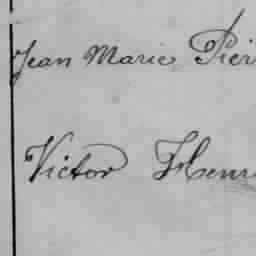 Jean Marie Pier
Victor Henr